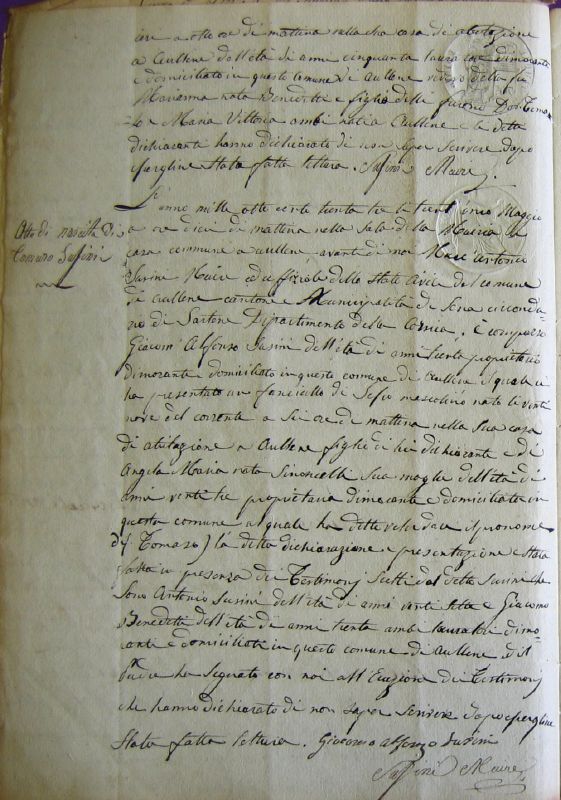 ore a otto ore di mattina nella sua casa di abitazione
a Aullene dell'età di anni cinquanta lauratore dimorante
e domiciliato in questo comune di Aullene vedovo della fu
Marianna nata Benedetti e figlio delli furono Don Toma
zo e Maria Vittoria ambi nati a Aullene e la detta
dichiaranti hanno dichiarato di non saper scrivere dapo
spergline stata fatta lettura. Susini Maire
Atto di nascita di
Tomaso Susini
L'anno mille otto cento trenta tre li trent'uno Maggio
a ore dieci di mattina nella sala della Mairia
casa commune a Aullene, avanti di noi Marc'Antonio
Susini Maire ed uffiziale dello stato Civile del comune
di Aullene cantone e Municipalità di Sena circonda-
rio di Sartene Dipartimento della Corsica, è comparso
Giacom'Alfonzo Susini dell'età di anni trenta proprietario
dimorante e domiciliato in questo comune di Aullene il quale ci
ha presentato un fanciullo di sesso mascolino nato li venti
nove del corrente a sei ore di mattina nella sua casa
di abitazione a Aullene figlio di lui dichiarante e di
Angela Maria nata Simoncelli sua moglie dell'età di
anni venti tre proprietaria dimorante e domiciliata in
questo comune al quale ha detto voler dare il pronome
di Tomaso) la detta dichiarazione e presentazione è stata
fatta in presenza dei Testimonj scelti dal detto Susini che
sono Antonio Susini dell'età di anni venti sette e Giacomo
Benedetti dell'età di anni trenta ambi lauratori dimo-
ranti e domiciliati in questo comune di Aullene ed il
Padre ha segnato con noi all'Eccezione dei Testimonj
che hanno dichiarato di non saper scrivere dapo spergline
stata fatta lettura. Giacomo Alfonzo Susini
Susini Maire